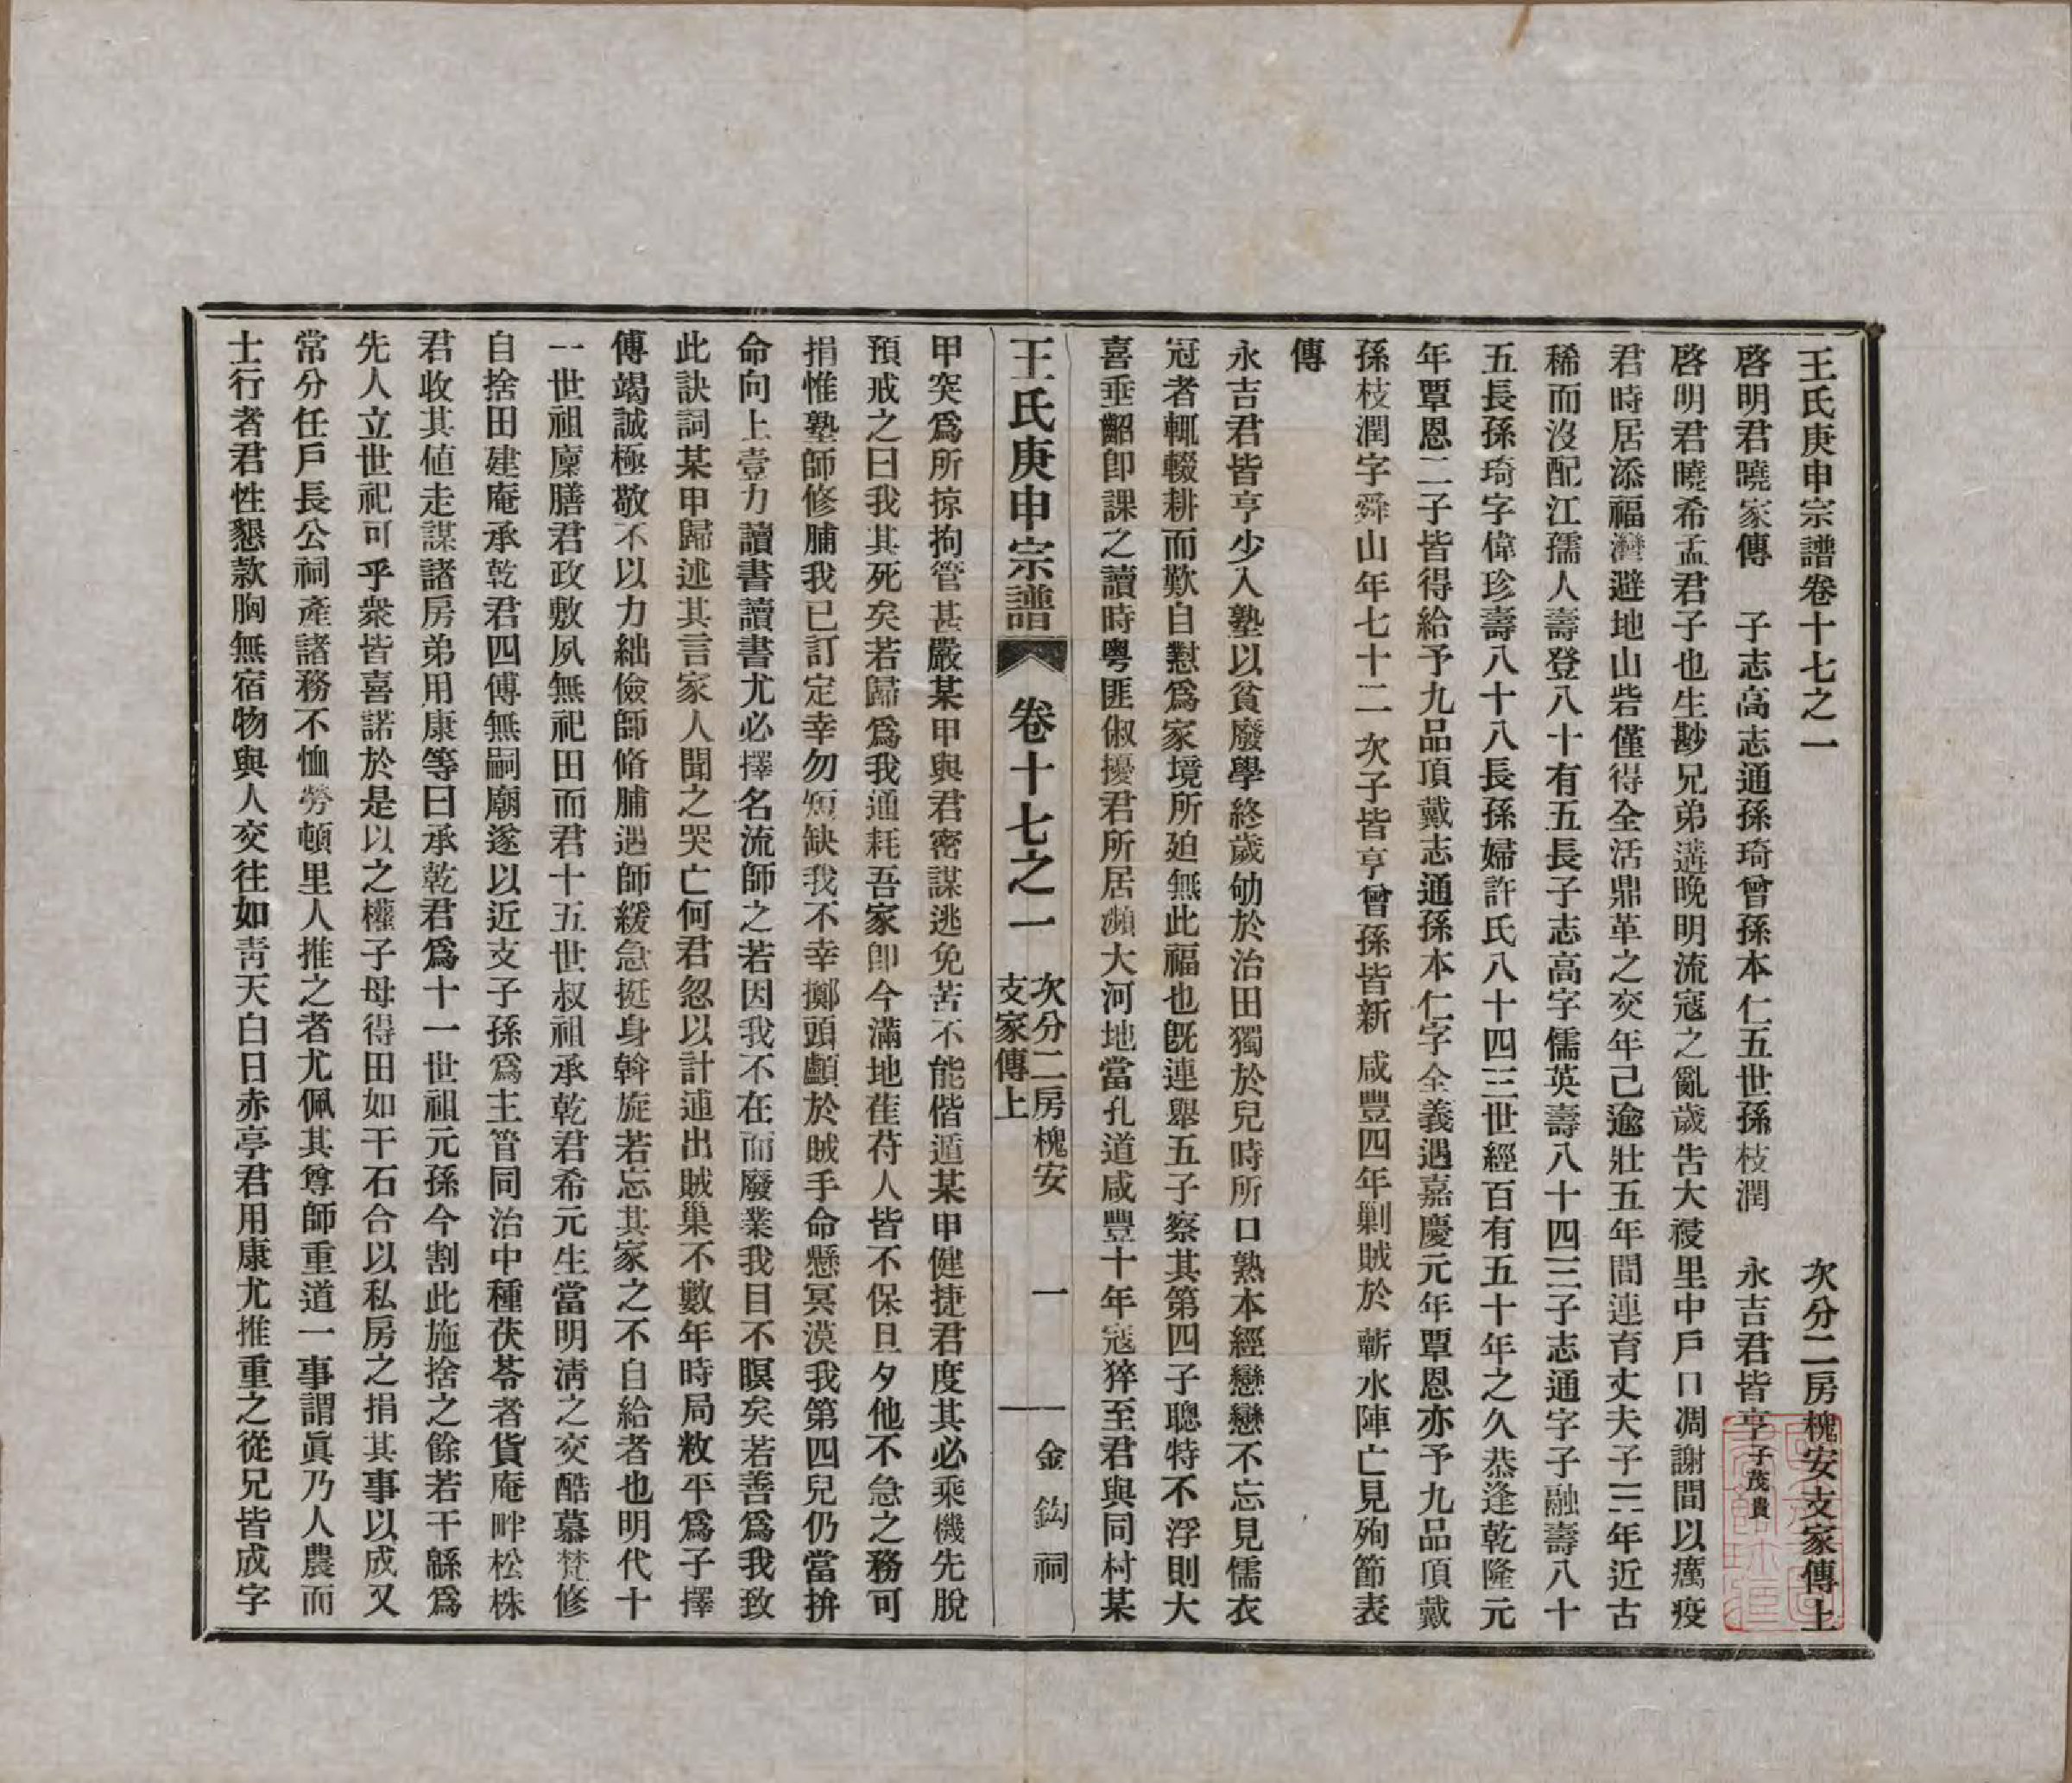 王氏庚申宗譜卷十七之一　次分二房槐安支家傳上
啓明君曉家傳　子志高志通孫琦曾孫本仁五世孫枝潤　永吉君皆亨子茂貴
啓明君曉希孟君子也生尠兄弟遘晚明流寇之亂歲告大祲里中戶口凋謝間以癘疫
君時居添福灣避地山砦僅得全活鼎革之交年己逾壯五年間連育丈夫子三年近古
稀而沒配江孺人壽登八十有五長子志高字儒英壽八十四三子志通字子融壽八十
五長孫琦字偉珍壽八十八長孫婦許氏八十四三世經百有五十年之久恭逢乾隆元
年覃恩二子皆得給予九品頂戴志通孫本仁字全義遇嘉慶元年覃恩亦予九品頂戴
孫枝潤字舜山年七十二次子皆亨曾孫皆新咸豐四年剿賊於蘄水陣亡見殉節表
傳
永吉君皆亨少入塾以貧廢學終歲劬於治田獨於兒時所口熟本經戀戀不忘見儒衣
冠者輒輟耕而歎自懟爲家境所廹無此福也旣連舉五子察其第四子聰特不浮則大
喜垂齠卽課之讀時粵匪俶擾君所居瀕大河地當孔道咸豐十年寇猝至君與同村某
王氏庚申宗譜　卷十七之一　次分二房槐安支家傳上　一　金鈎祠
甲突爲所掠拘管甚嚴某甲與君密謀逃免苦不能偕遁某甲健捷君度其必乘機先脫
預戒之曰我其死矣若歸爲我通耗吾家卽今滿地萑苻人皆不保旦夕他不急之務可
捐惟塾師修脯我已訂定幸勿短缺我不幸擲頭顱於賊手命懸冥漠我第四兒仍當拚
命向上壹力讀書讀書尤必擇名流師之若因我不在而廢業我目不瞑矣若善爲我致
此訣詞某甲歸述其言家人聞之哭亡何君忽以計逋出賊巢不數年時局敉平爲子擇
傅竭誠極敬不以力絀儉師脩脯遇師緩急挺身斡旋若忘其家之不自給者也明代十
一世祖廩膳君政敷夙無祀田而君十五世叔祖承乾君希元生當明淸之交酷慕梵修
自捨田建庵承乾君四傅無嗣廟遂以近支子孫爲主管同治中種茯苓者貨庵畔松株
君收其値走謀諸房弟用康等曰承乾君爲十一世祖元孫今割此施捨之餘若干緜爲
先人立世祀可乎衆皆喜諾於是以之權子母得田如干石合以私房之捐其事以成又
常分任戶長公祠產諸務不恤勞頓里人推之者尤佩其尊師重道一事謂眞乃人農而
士行者君性懇款胸無宿物與人交往如靑天白日赤亭君用康尤推重之從兄皆成字